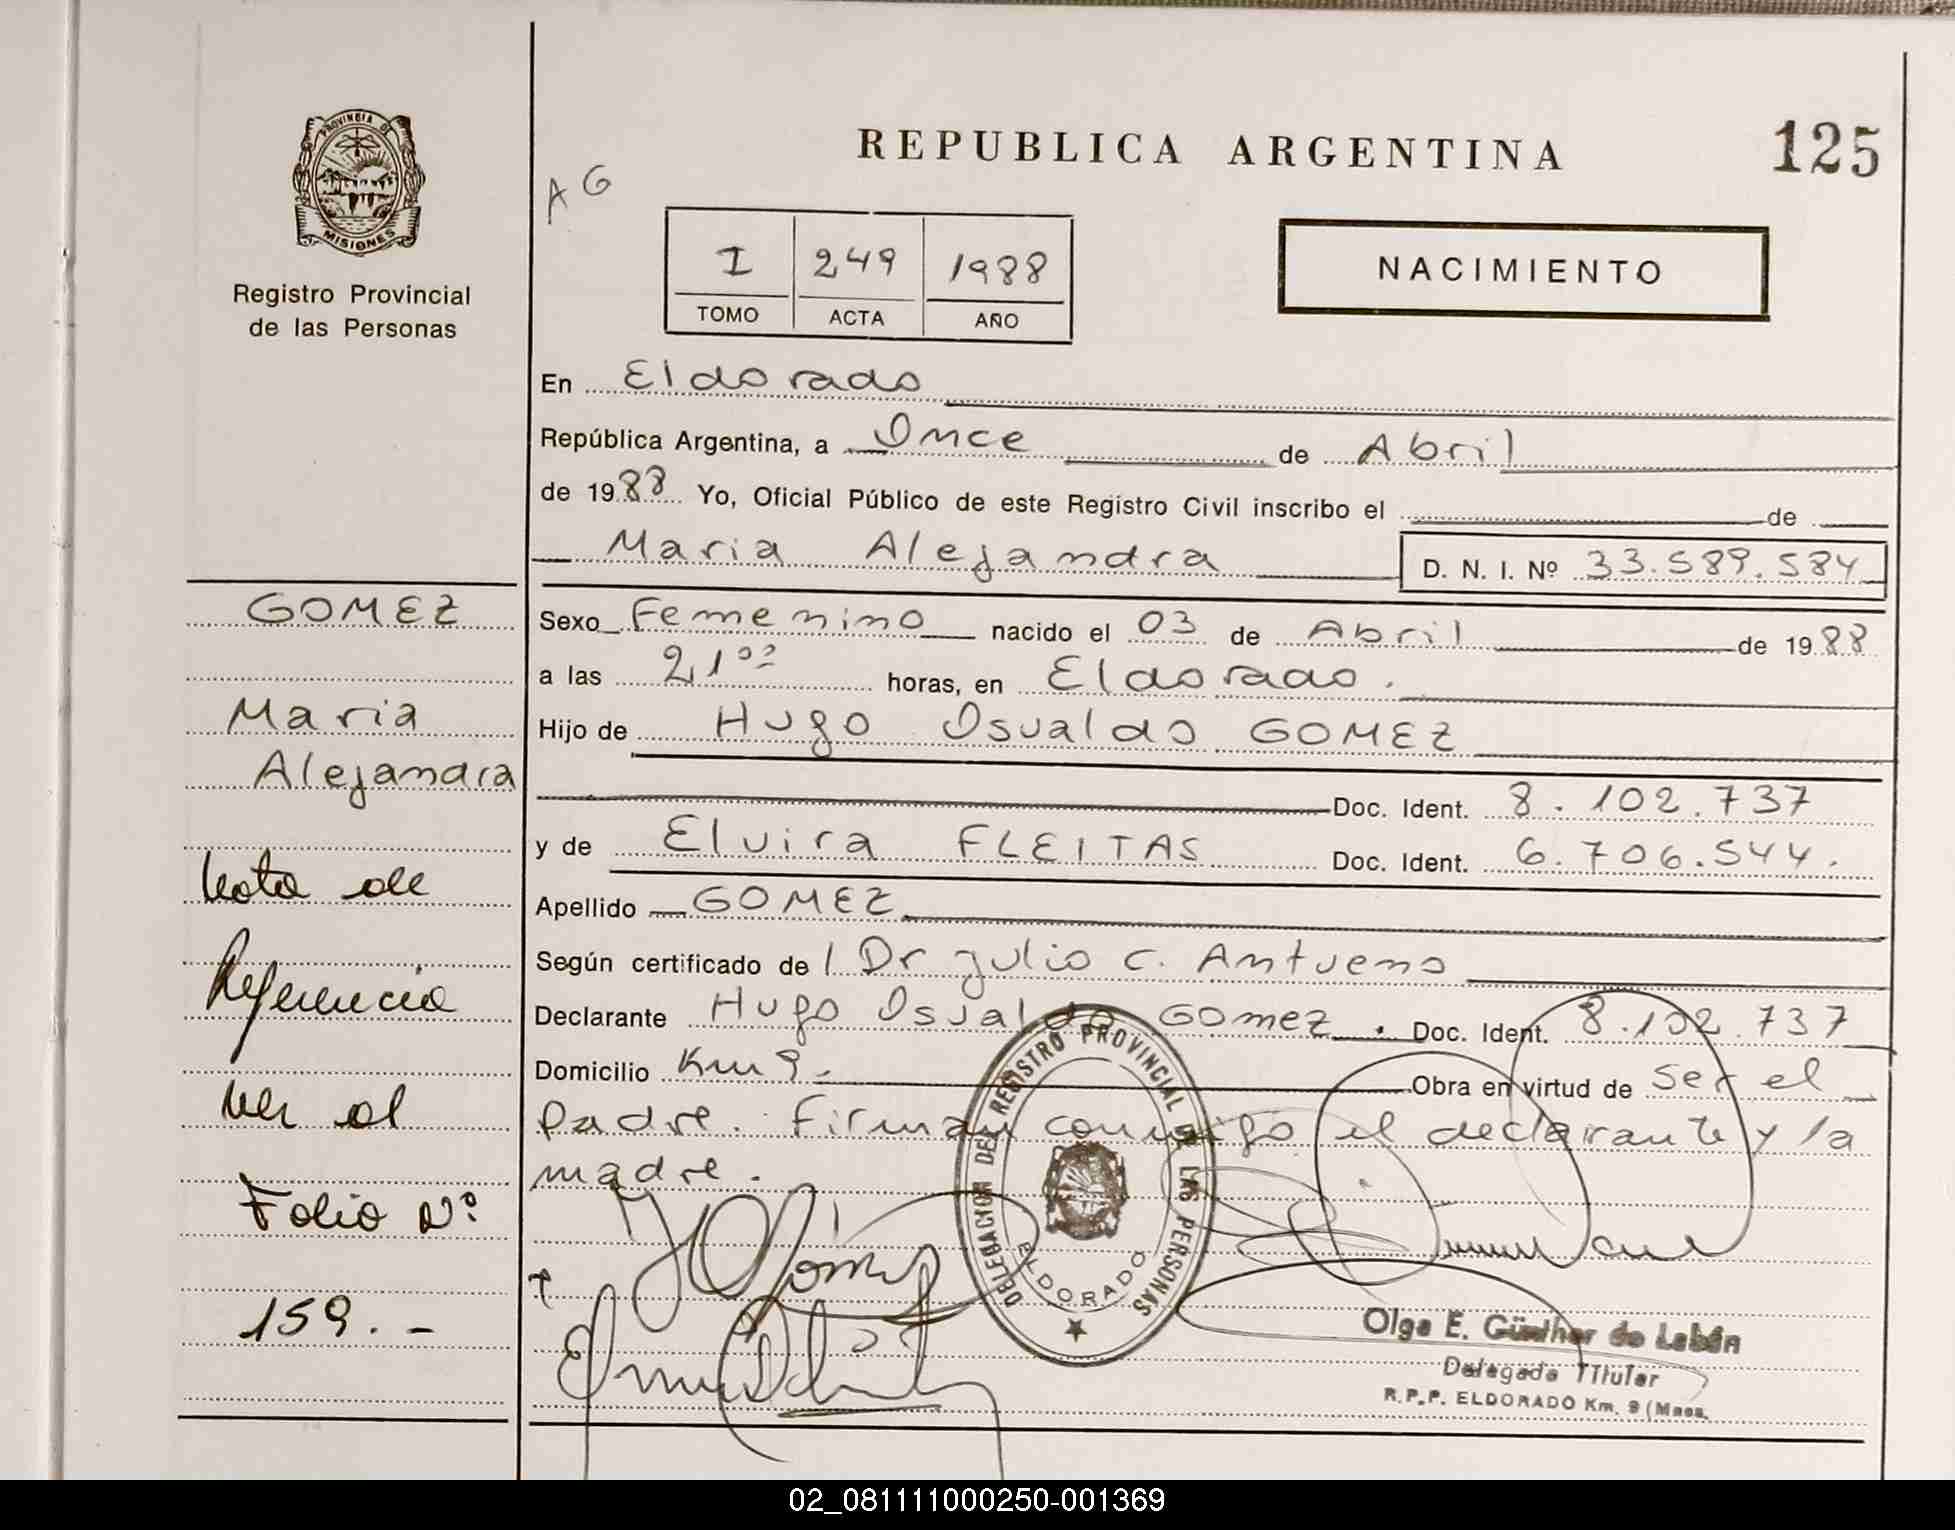 PROVINCIA DE
MISIONES
Registro Provincial
de las Personas
REPUBLICA ARGENTINA
125
AG
I 249 1988
TOMO ACTA AÑO
NACIMIENTO
En Eldorado
República Argentina, a Once de Abril
de 1988 Yo, Oficial Público de este Registro Civil inscribo el de
Maria Alejandra D. N. I. Nº 33.589.584
Sexo Femenino nacido el 03 de Abril de 1988
a las 21 horas, en Eldorado.
Hijo de Hugo Osvaldo GOMEZ
Doc. Ident. 8.102.737
y de Elvira FLEITAS Doc. Ident. 6.706.544.
Apellido GOMEZ
Según certificado de l Dr Julio C. Antueno
Declarante Hugo Osvaldo Gomez. Doc. Ident. 8.102.737
Domicilio Km 9. Obra en virtud de Ser el
Padre. Firman conmigo el declarante y la
madre.
GOMEZ
Maria
Alejandra
Nota de
Referencia
ver al
Folio Nº
159.-
DELEGACION DEL REGISTRO PROVINCIAL DE LAS PERSONAS
ELDORADO
Olga E. Günther de Lebán
Delegada Titular
R.P.P. ELDORADO Km. 9 (Mnes.
02_081111000250-001369